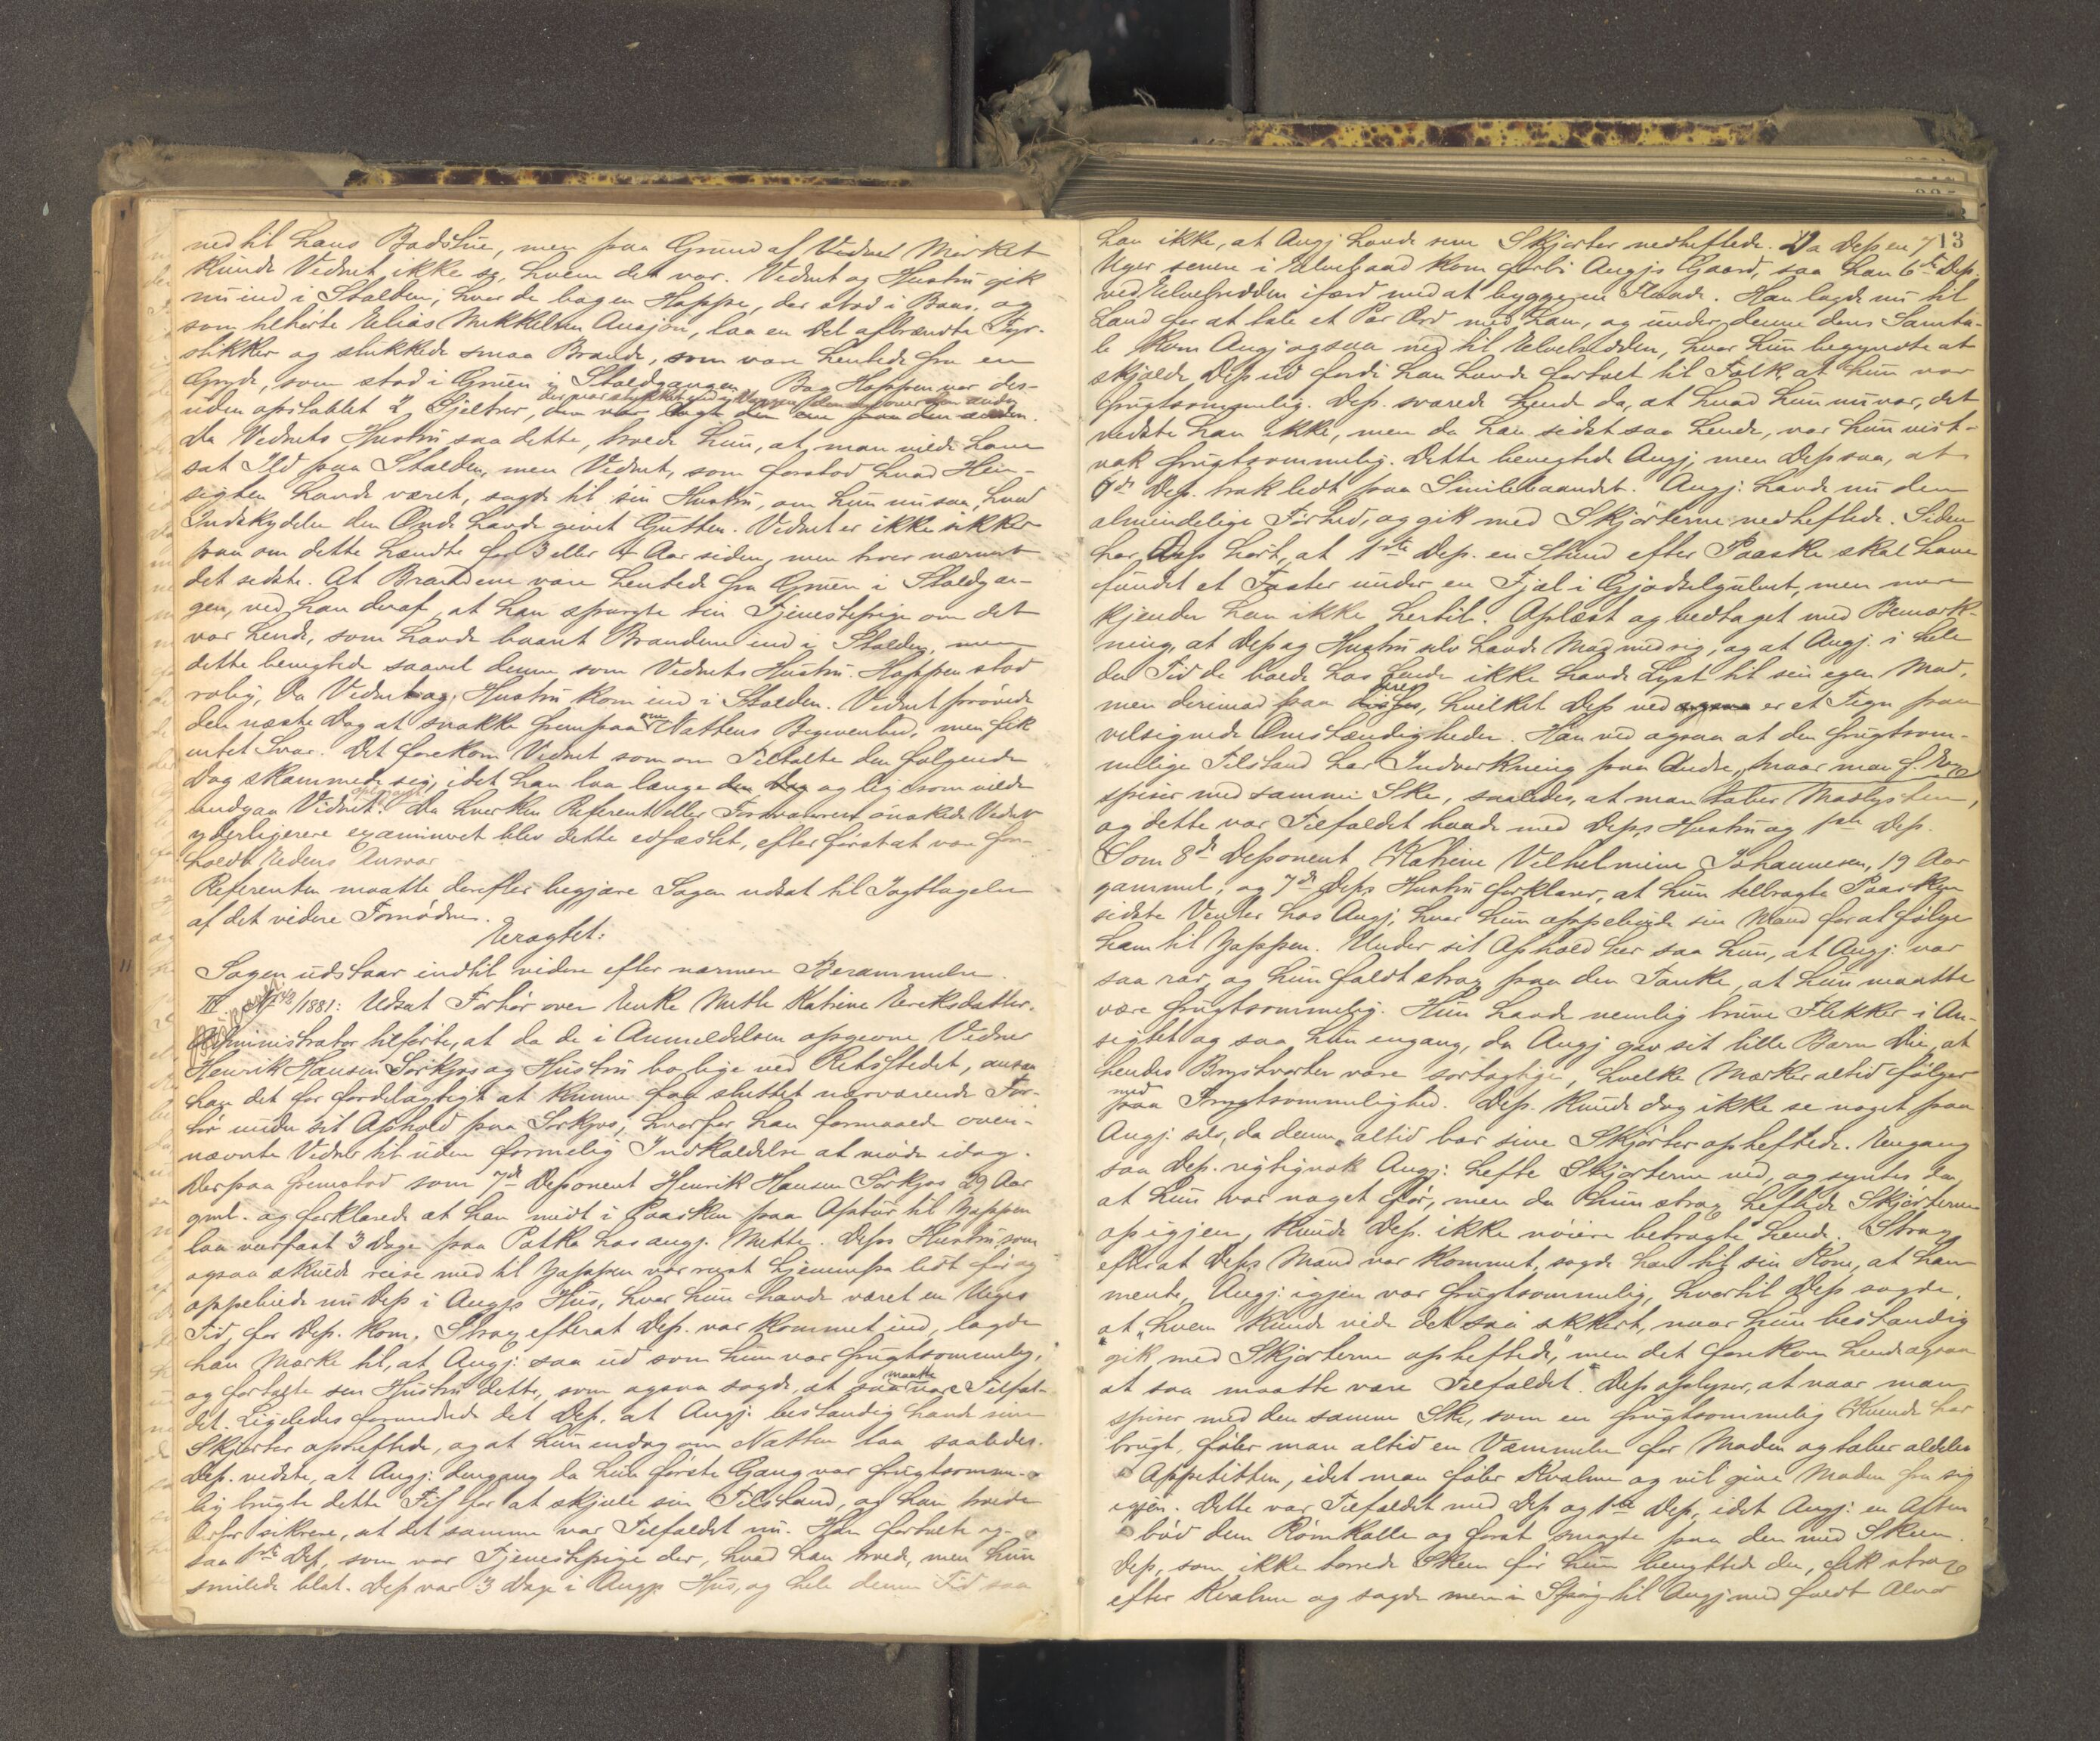 ned til hans Badstue, men paa Grund af Vidnet Mørket
kunde Vidnet ikke se, hvem det var. Vidnet og Hustru gik
nu ind i Stalden, hvor de bag en Hoppe, der stod i Baas, og
som tilhørte Elias Mikkelsen Aasjøn, laa en Del afbrændte Fyr-
stikker og slukkede smaa Brande, som vare hentede fra en
Gryde, som stod i Gruen i Staldgangen. Bag Hoppen var des-
uden opstablet 2 Gjeltner, den ene paa den anden.
Da Vidnets Hustru saa dette, troede hun, at man vilde have
sat Ild paa Stalden, men Vidnet, som forstod hvad Hen-
sigten havde været, sagde til sin Hustru, om hun nu saa, hvad
Indskydelse den Onde havde givet Gutten. Vidnet er ikke sikker
paa om dette hændte for 3 eller 4 Aar siden, men tror nærmest
det sidste. At Brandene vare hentede fra Gruen i Staldgan-
gen, ved han deraf, at han spurgte sin Tjenestepige om det
var hende, som havde baaret Brandene ind i Stalden, men
dette benegtede saavel denne som Vidnets Hustru. Hoppen stod
rolig, da Vidnet og Hustru kom ind i Stalden. Vidnet prøvede
den næste Dag at snakke frempaa om Nattens Begivenhed, men fik
intet Svar. Det forekom Vidnet som om Tiltalte den følgende
Dag skammede sig, idet han laa længe den Dag og ligesom vilde
undgaa Vidnet. Oplæst. Da hverken Referent eller Defensor ønskede Vidnet
yderligere examineret blev dette edfæstet, efter først at være fore-
holdt Edens Ansvar
Referenten maatte derefter begjære Sagen udsat til Iagttagelse
af det videre Fornødne.
Eragtet:
Sagen udstaar indtil videre efter nærmere Berammelse.
II. /1881: Udsat Forhør over Enke Mette Katrine Eriksdatter.
Administrator tilførte, at da de i Anmeldelsen opgivne Vidner
Henrik Hansen Sørkjos og Hustru bo lige ved Retsstedet, ansaa
han det for fordelagtigt at kunne faa sluttet nærværende For-
hør under sit Ophold paa Sørkjos, hvorfor han formaaede oven-
nævnte Vidner til uden formelig Indkaldelse at møde idag.
Derpaa fremstod som 7de Deponent Henrik Hansen Sørkjos 29 Aar
gml. og forklarede at han midt i Paasken paa Optur til Jøppen
laa veirfast 3 Dage paa Potka hos angj. Mette. Deps Hustru som
ogsaa skulde reise med til Jøppen var reist hjemmefra lidt før og
oppebiede nu Dep i Angjs Hus, hvor hun havde været en Uges
Tid, før Dep. kom. Strax efterat Dep. var kommet ind, lagde
han Mærke til, at Angj: saa ud som hun var frugtsommelig,
og fortalte sin Hustru dette, som ogsaa sagde, at saa maatte være Tilfæl-
det. Ligeledes forundrede det Dep. at Angj: bestandig havde sine
Skjørter opheftede, og at hun endog om Natten laa saaledes.
Dep. vidste, at Angj: dengang da hun første Gang var frugtsomme-
lig brugte dette Fif for at skjule sin Tilstand, og han troede
derfor sikrere, at det samme var Tilfældet nu. Han fortalte og-
saa 1ste Dep, som var Tjenestepige der, hvad han troede, men hun
smilede blot. Dep var 3 Dage i Angjs Hus, og hele denne Tid saa
13
han ikke, at Angj havde sine Skjørter nedheftede. Da Dep en 7
Uger senere i Elvebaad kom forbi Angjs Gaard, saa han 6te Dep.
ved Elvebredden ifærd med at bygge en Flaade. Han lagde nu til
Land for at tale et Par Ord med ham, og under denne deres Samta-
le kom Angj ogsaa ned til Elvebredden, hvor hun begyndte at
skjælde Dep ud fordi han havde fortalt til Folk at hun var
frugtsommelig. Dep. svarede hende da, at hvad hun nu var, det
vidste han ikke, men da han sidst saa hende, var hun vist-
nok frugtsommelig. Dette benegtede Angj, men Dep saa, at
6de Dep. trak lidt paa Smilebaandet. Angj: havde nu den
almindelige Førhed, og gik med Skjørterne nedheftede. Siden
har Dep hørt, at 1ste Dep. en Stund efter Paaske skal have
fundet et Foster under en Fjæl i Gjødselgulvet, men mere
kjender han ikke hertil. Oplæst og vedtaget med Bemærk-
ning, at Dep og Hustru selv havde Mad med sig, og at Angj. i hele
den Tid de boede hos hende ikke havde Lyst til sin egen Mad,
men derimod paa deres, hvilket Dep ved ogsaa er et Tegn paa
velsignede Omstændigheder. Han ved ogsaa at den frugtsom-
melige Tilstand har Indvirkning paa Andre, naar man f. Ex
spiser med samme Ske, saaledes, at man taber Madlysten,
og dette var Tilfældet baade med Deps Hustru og 1ste Dep.
Som 8de Deponent Katrine Vilhelmine Johannesen, 19 Aar
gammel, og 7de Deps Hustru forklarer, at hun tilbragte Paasken
sidste Vinter hos Angj, hvor hun oppebiede sin Mand for at følge
ham til Jøppen. Under sit Ophold her saa hun, at Angj: var
saa rar, og hun faldt strax paa den Tanke, at hun maatte
være frugtsommelig. Hun havde nemlig brune Flekker i An-
sigtet og saa hun engang, da Angj gav sit lille Barn Die, at
hendes Brystvorter vare sortagtige, hvilke Mærker altid følger
med paa Frugtsommelighed. Dep. kunde dog ikke se noget paa
Angj: selv, da denne altid bar sine Skjørter opheftede. Engang
saa Dep. rigtignok Angj: hefte Skjørterne ned, og syntes da
at hun var noget før, men da hun strax heftede Skjørterne
op igjen, kunde Dep. ikke nøiere betragte hende. Strax
efterat Deps Mand var kommet, sagde han til sin Kone, at han
mente, Angj: igjen var frugtsommelig, hvortil Dep sagde,
at „hvem kunde vide det saa sikkert, naar hun bestandig
gik med Skjørterne opheftede", men det forekom hende ogsaa
at saa maatte være Tilfældet. Dep oplyser, at naar man
spiser med den samme Ske, som en frugtsommelig Kvinde har
brugt, føler man altid en Væmmelse for Maden og taber aldeles
Appetitten, idet man føler Kvalme og vil give Maden fra sig
igjen. Dette var Tilfældet med Dep og 1ste Dep, idet Angj: en Aften
bød dem Rømkolle og først smagte paa den med Skeen.
Dep, som ikke tørrede Skeen før hun benyttede den, fik strax
efter Kvalme og sagde mere i Spøg til Angj med fuldt Alvor